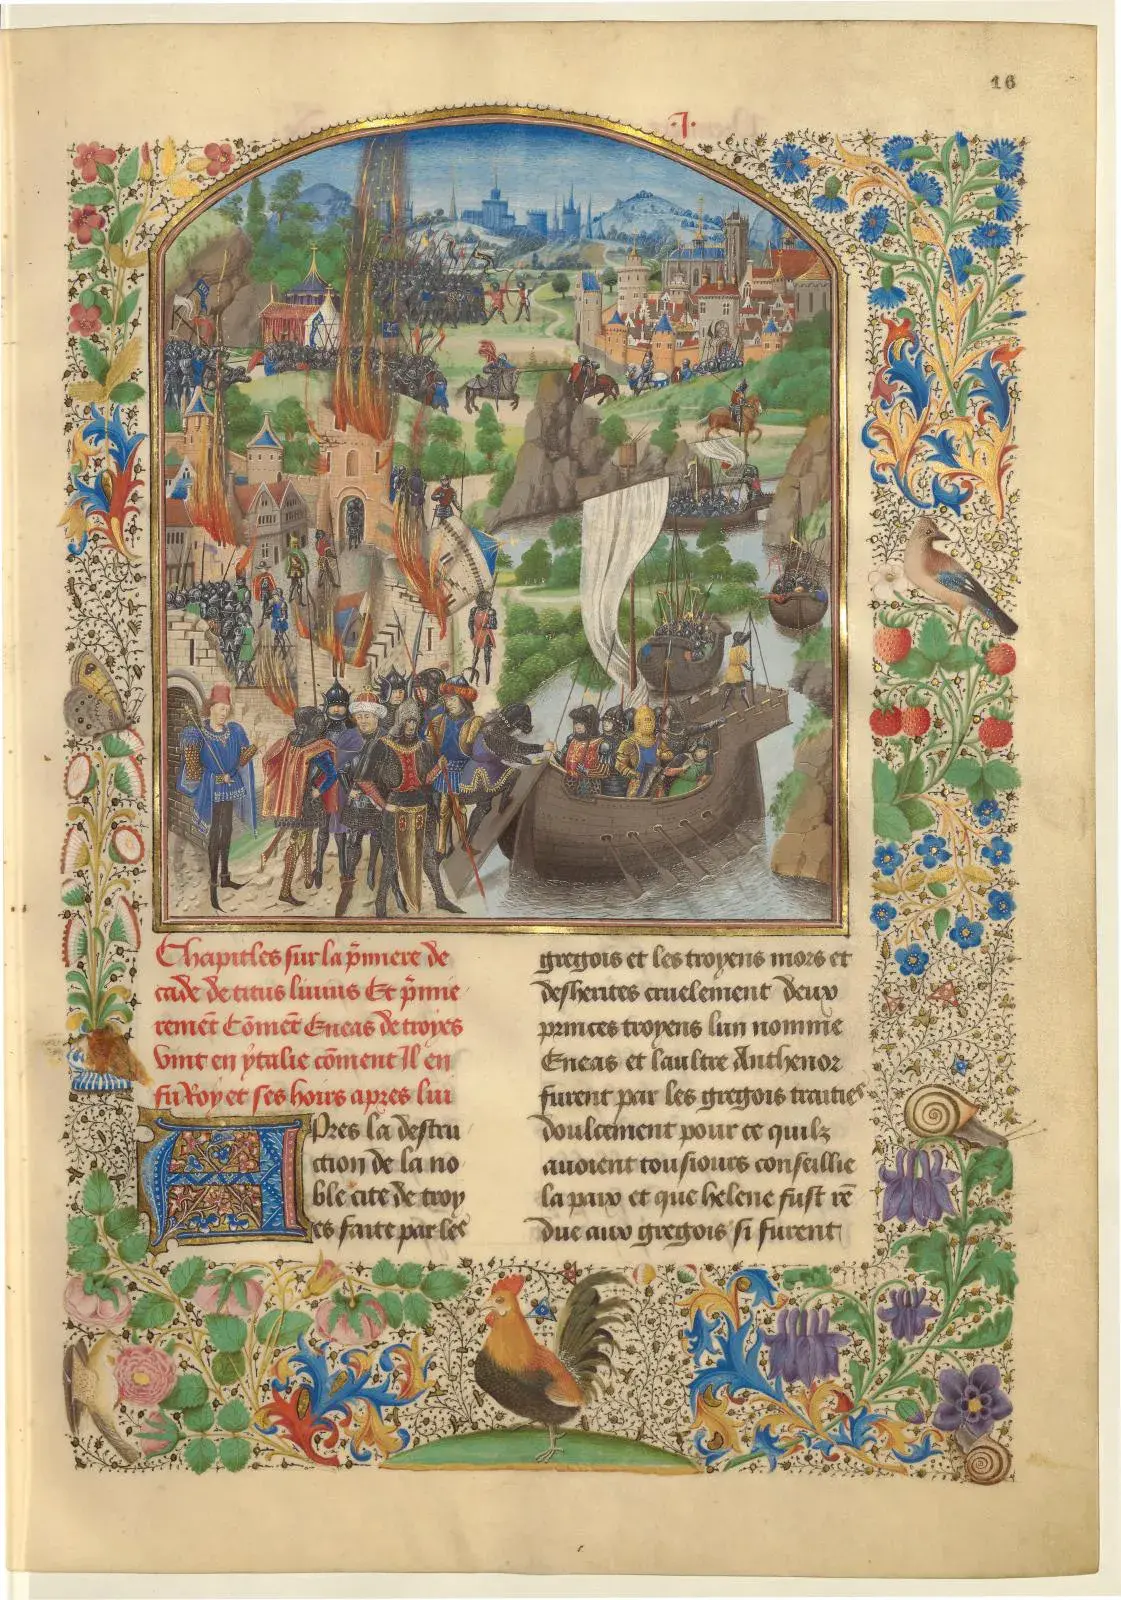 16
.I.
Chapitles sur la p̄miere de
cade de titus liuius Et p̄mie
remēt Cōmēt Eneas de troyes
vint en ytalie cōment Il en
fu Roy et ses hoirs apres lui
Apres la destru
ction de la no
ble cite de troy
es faite par les
gregois et les troyens mors et
desherites cruelement deux
princes troyens lun nomme
Eneas et laultre Anthenor
furent par les gregois traities
doulcement pour ce quilz
auoient tousiours conseillie
la paix et que helene fust rē
due aux gregois si furent